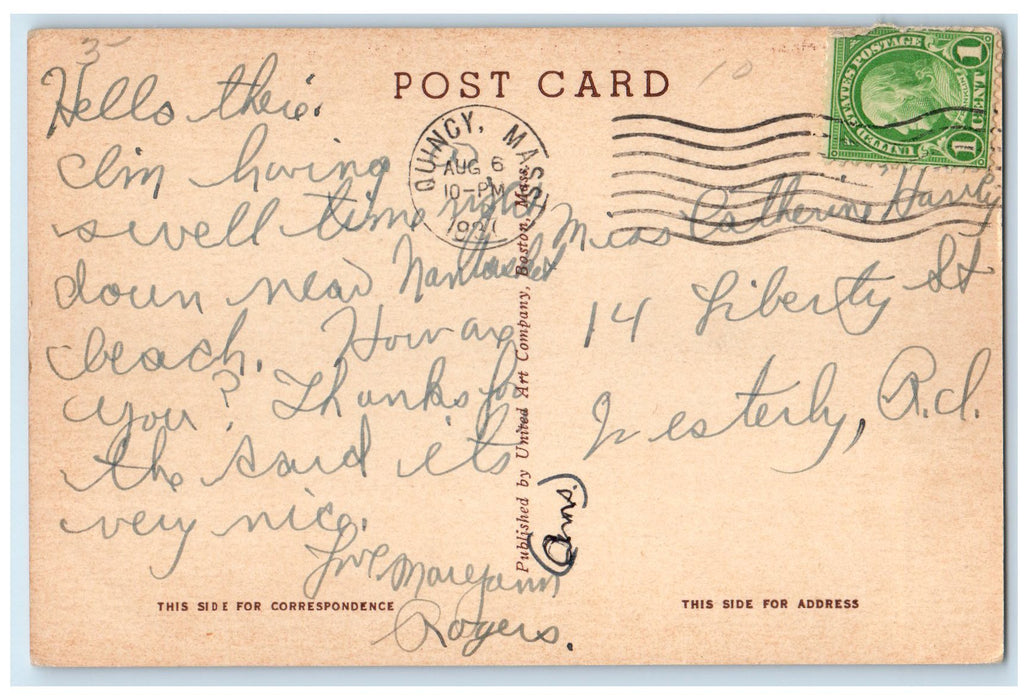 3-
POST CARD
10
UNITED STATES POSTAGE
1 CENT 1
QUINCY, MASS.
AUG 6
10-PM
Hello there.
I'm having
swell time right
down near Nantasket
beach. How are
you? Thanks for
the card its
very nice.
Love Maryann
Rogers.
Miss Catherine
14 Liberty St
Westerly, R.I.
Published by United Art Company, Boston, Mass.
THIS SIDE FOR CORRESPONDENCE
THIS SIDE FOR ADDRESS